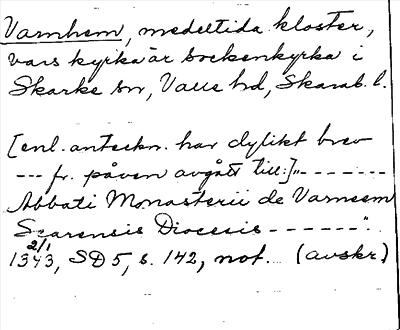 Varnhem, medeltida kloster,
vars kyrka är sockenkyrka i
Skarke sn, Valle hd, Skarab. l.
[enl. anteckn. har dylikt brev
--- fr. påven avgått till:]"-------
Abbati Monasterii de Varneem
Scarensis Diocesis ------".
2/1
1343, SD 5, s. 142, not. (avskr.)